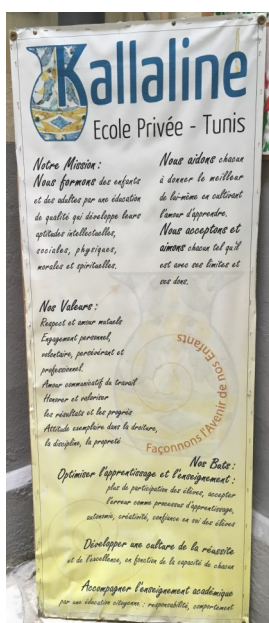 Kallaline
Ecole Privée - Tunis
Notre Mission :
Nous formons des enfants
et des adultes par une éducation
de qualité qui développe leurs
aptitudes intellectuelles,
sociales, physiques,
morales et spirituelles.
Nous aidons chacun
à donner le meilleur
de lui-même en cultivant
l'amour d'apprendre.
Nous acceptons et
aimons chacun tel qu'il
est avec ses limites et
ses dons.
Nos Valeurs :
Respect et amour mutuels
Engagement personnel,
volontaire, persévérant et
professionnel.
Amour communicatif du travail
Honorer et valoriser
les résultats et les progrès
Attitude exemplaire dans la droiture,
la discipline, la propreté
Façonnons l'Avenir de nos Enfants
Nos Buts :
Optimiser l'apprentissage et l'enseignement :
plus de participation des élèves, accepter
l'erreur comme processus d'apprentissage,
autonomie, créativité, confiance en soi des élèves
Développer une culture de la réussite
et de l'excellence, en fonction de la capacité de chacun
Accompagner l'enseignement académique
par une éducation citoyenne : responsabilité, comportement